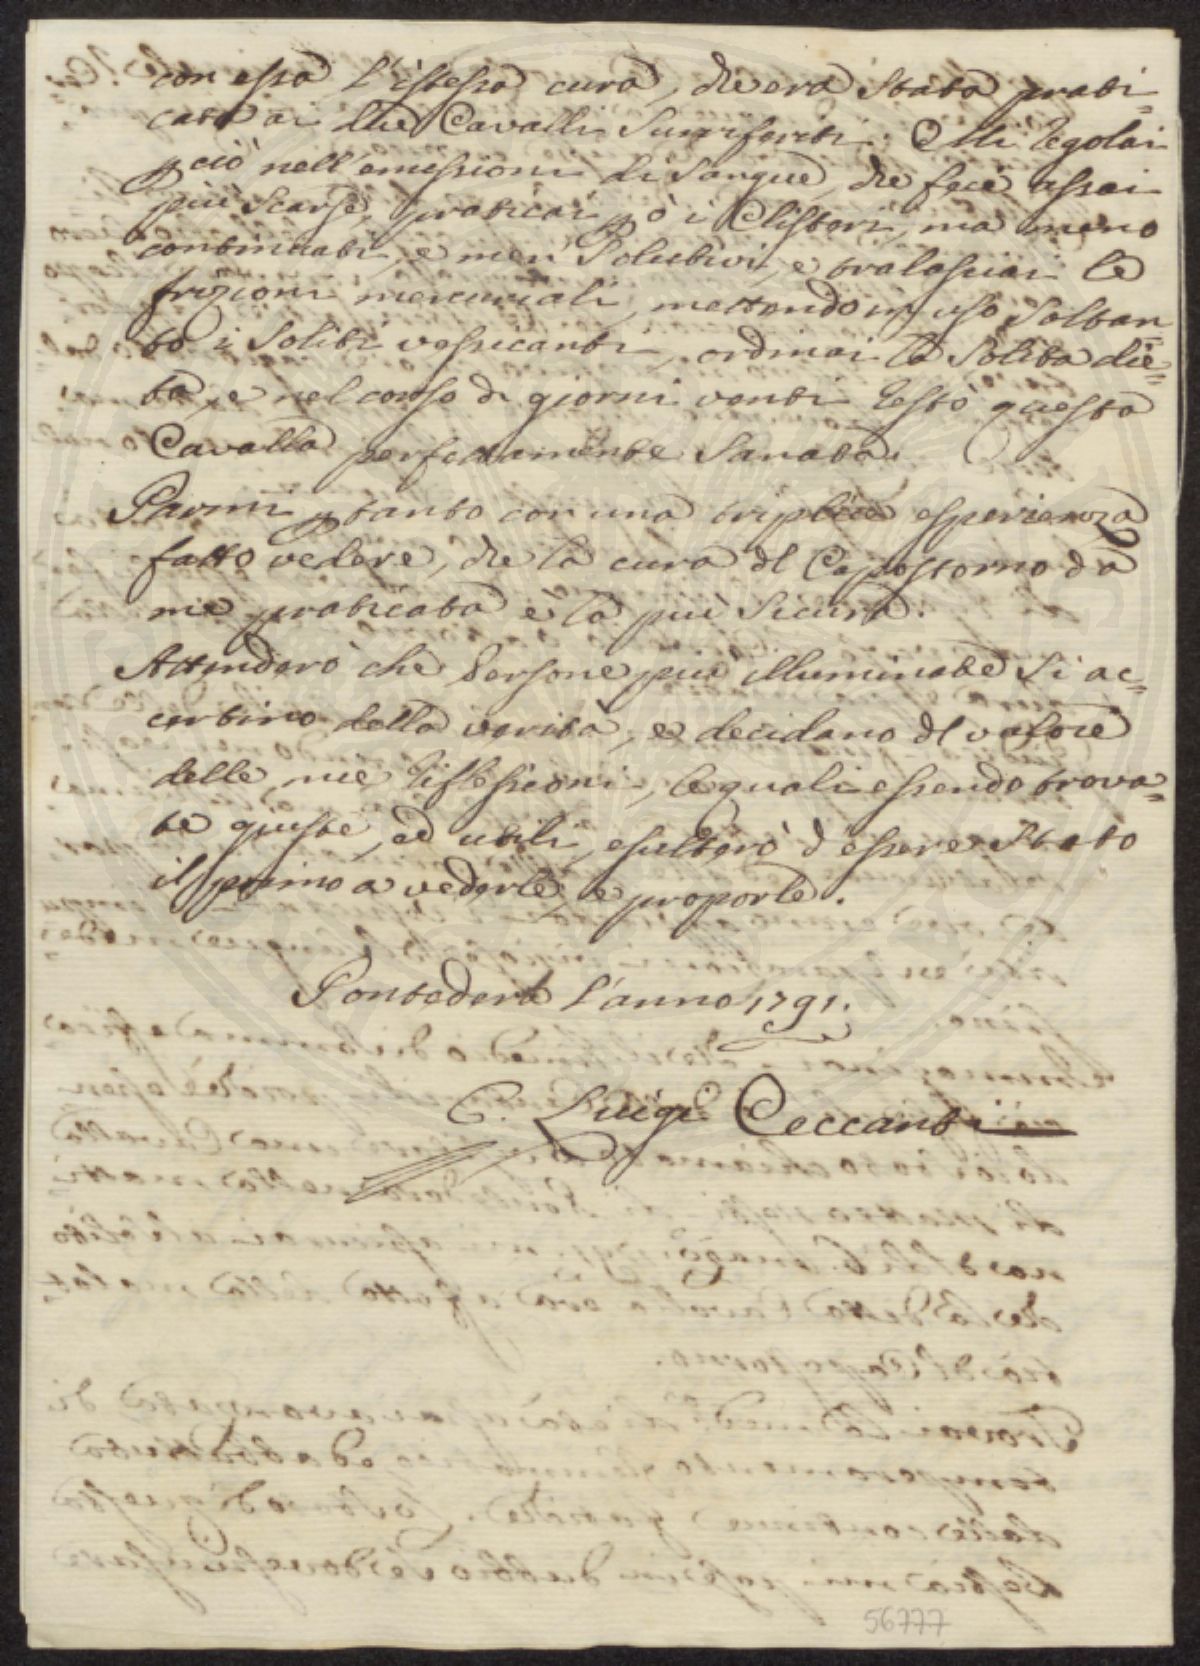 con essa l'istessa cura, che era stata prati=
cata ai due Cavalli surriferiti. Mi regolai
p ciò nell'emissioni di Sangue, che feci assai
più scarse, praticai p ò i Clisteri, ma meno
continuati, e men Solutivi, e tralasciai le
frizioni mercuriali, mettendo in uso soltan=
to i soliti vessicanti, ordinai la solita die=
ta, e nel corso di giorni venti restò questa
Cavalla perfettamente sanata.
Parmi p tanto con una triplice esperienza
fatto vedere, che la cura dl Capostorno da
me praticata è la più sicura.
Attenderò che Persone più illuminate si ac=
certino della verità, e decidano dl valore
delle mie riflessioni, le quali essendo trova=
te giuste, ed utili, esulterò d'essere stato
il primo a vederle, e proporle.
Pontedera l'anno 1791.
Luigi Ceccanti
56777